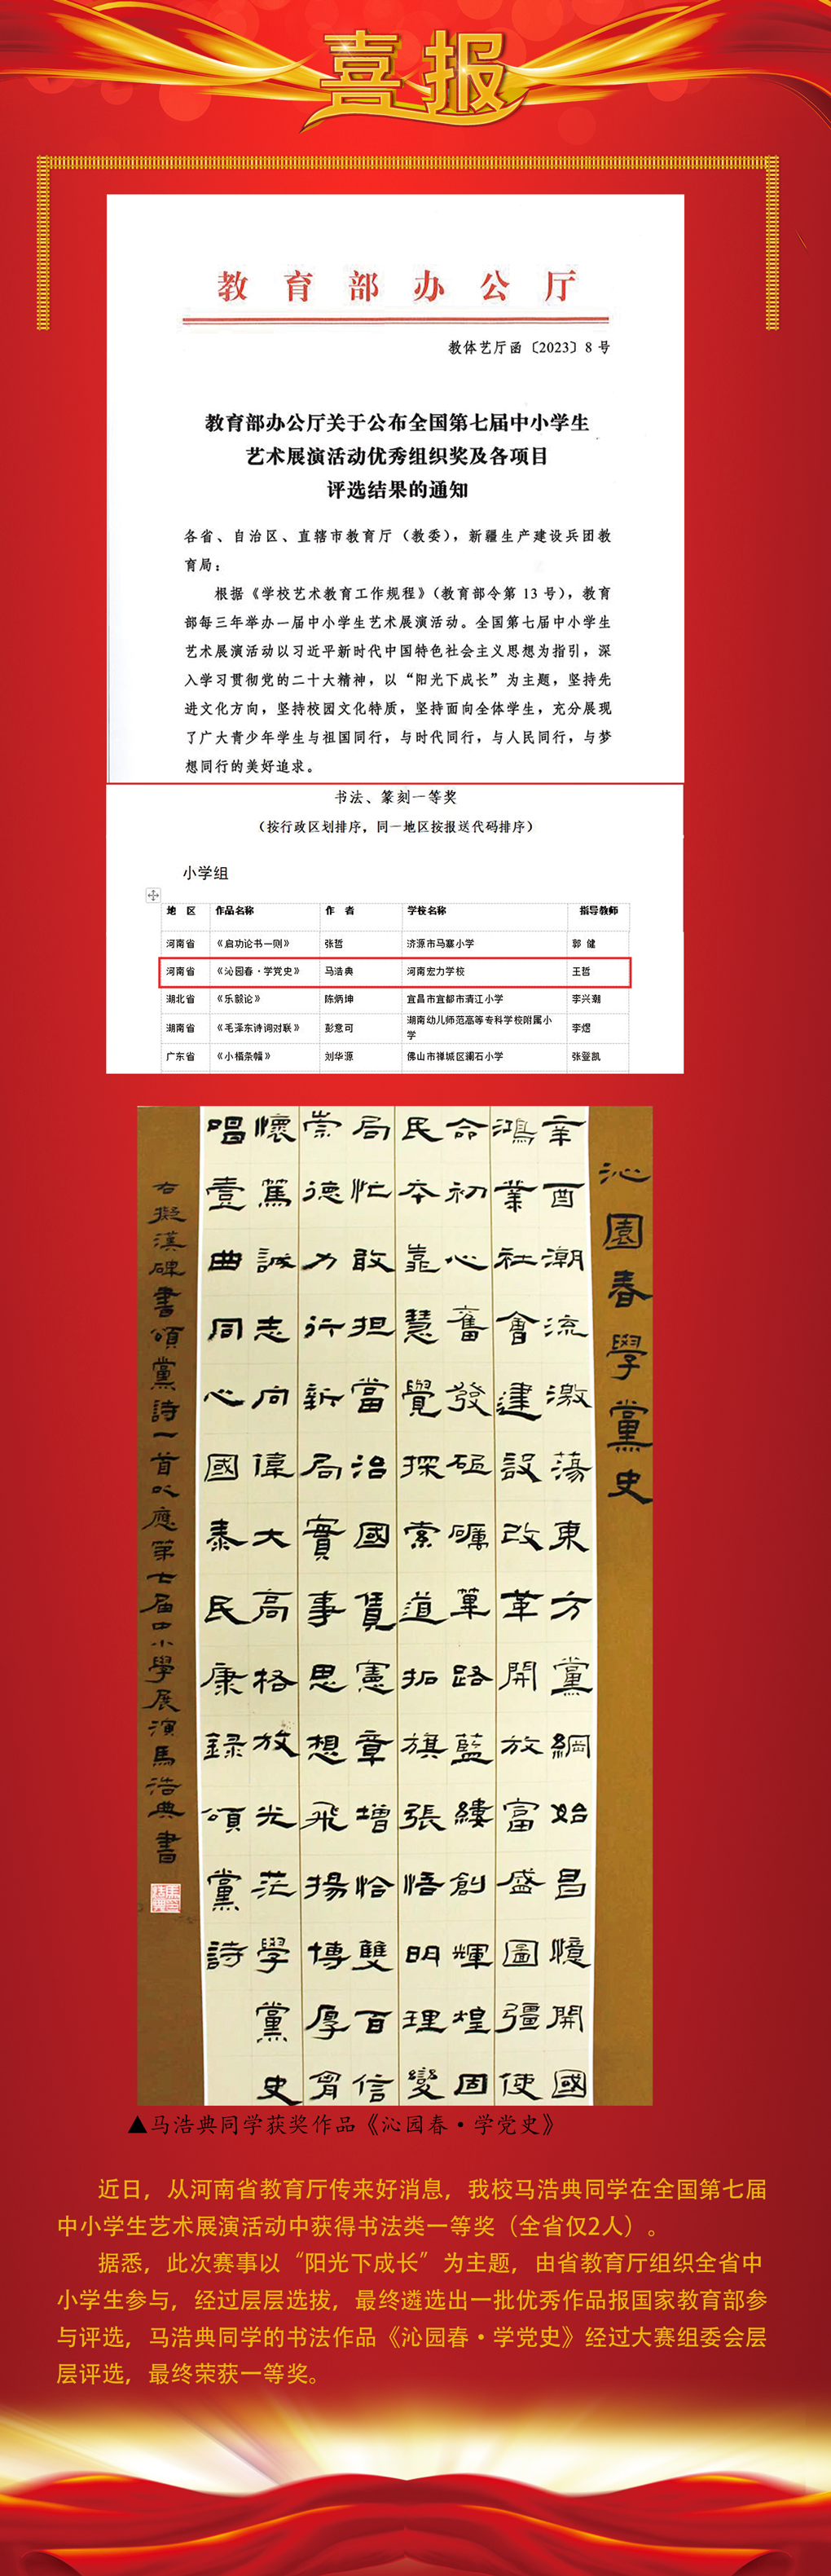 喜报
教育部办公厅
教体艺厅函〔2023〕8号
教育部办公厅关于公布全国第七届中小学生
艺术展演活动优秀组织奖及各项目
评选结果的通知
各省、自治区、直辖市教育厅（教委），新疆生产建设兵团教
育局：
根据《学校艺术教育工作规程》（教育部令第 13 号），教育
部每三年举办一届中小学生艺术展演活动。全国第七届中小学生
艺术展演活动以习近平新时代中国特色社会主义思想为指引，深
入学习贯彻党的二十大精神，以“阳光下成长”为主题，坚持先
进文化方向，坚持校园文化特质，坚持面向全体学生，充分展现
了广大青少年学生与祖国同行，与时代同行，与人民同行，与梦
想同行的美好追求。
书法、篆刻一等奖
（按行政区划排序，同一地区按报送代码排序）
小学组
地 区 作品名称 作 者 学校名称 指导教师
河南省 《启功论书一则》 张哲 济源市马寨小学 郭 健
河南省 《沁园春·学党史》 马浩典 河南宏力学校 王哲
湖北省 《乐毅论》 陈炳坤 宜昌市宜都市清江小学 李兴潮
湖南省 《毛泽东诗词对联》 彭意可 湖南幼儿师范高等专科学校附属小
学 李熠
广东省 《小楷条幅》 刘华源 佛山市禅城区澜石小学 李登凯
沁園春學黨史
辛酉潮流激蕩東方黨綱始昌憶開國
鴻業社會建設改革開放富盛圖疆使
命初心奮發砥礪篳路藍縷創輝煌固
民本靠慧覺探索道拓旗張悟明理變
局忙敢担當治國賃憲章增恰雙百信
崇德力行新局實事思想飛揚博厚胷
懷篤誠志向偉大高格放光茫學黨史
唱壹曲同心國泰民康録頌黨詩
右擬漢碑書頌黨詩一首以應第七届中小學展演馬浩典書
▲马浩典同学获奖作品《沁园春·学党史》
近日，从河南省教育厅传来好消息，我校马浩典同学在全国第七届
中小学生艺术展演活动中获得书法类一等奖（全省仅2人）。
据悉，此次赛事以“阳光下成长”为主题，由省教育厅组织全省中
小学生参与，经过层层选拔，最终遴选出一批优秀作品报国家教育部参
与评选，马浩典同学的书法作品《沁园春·学党史》经过大赛组委会层
层评选，最终荣获一等奖。